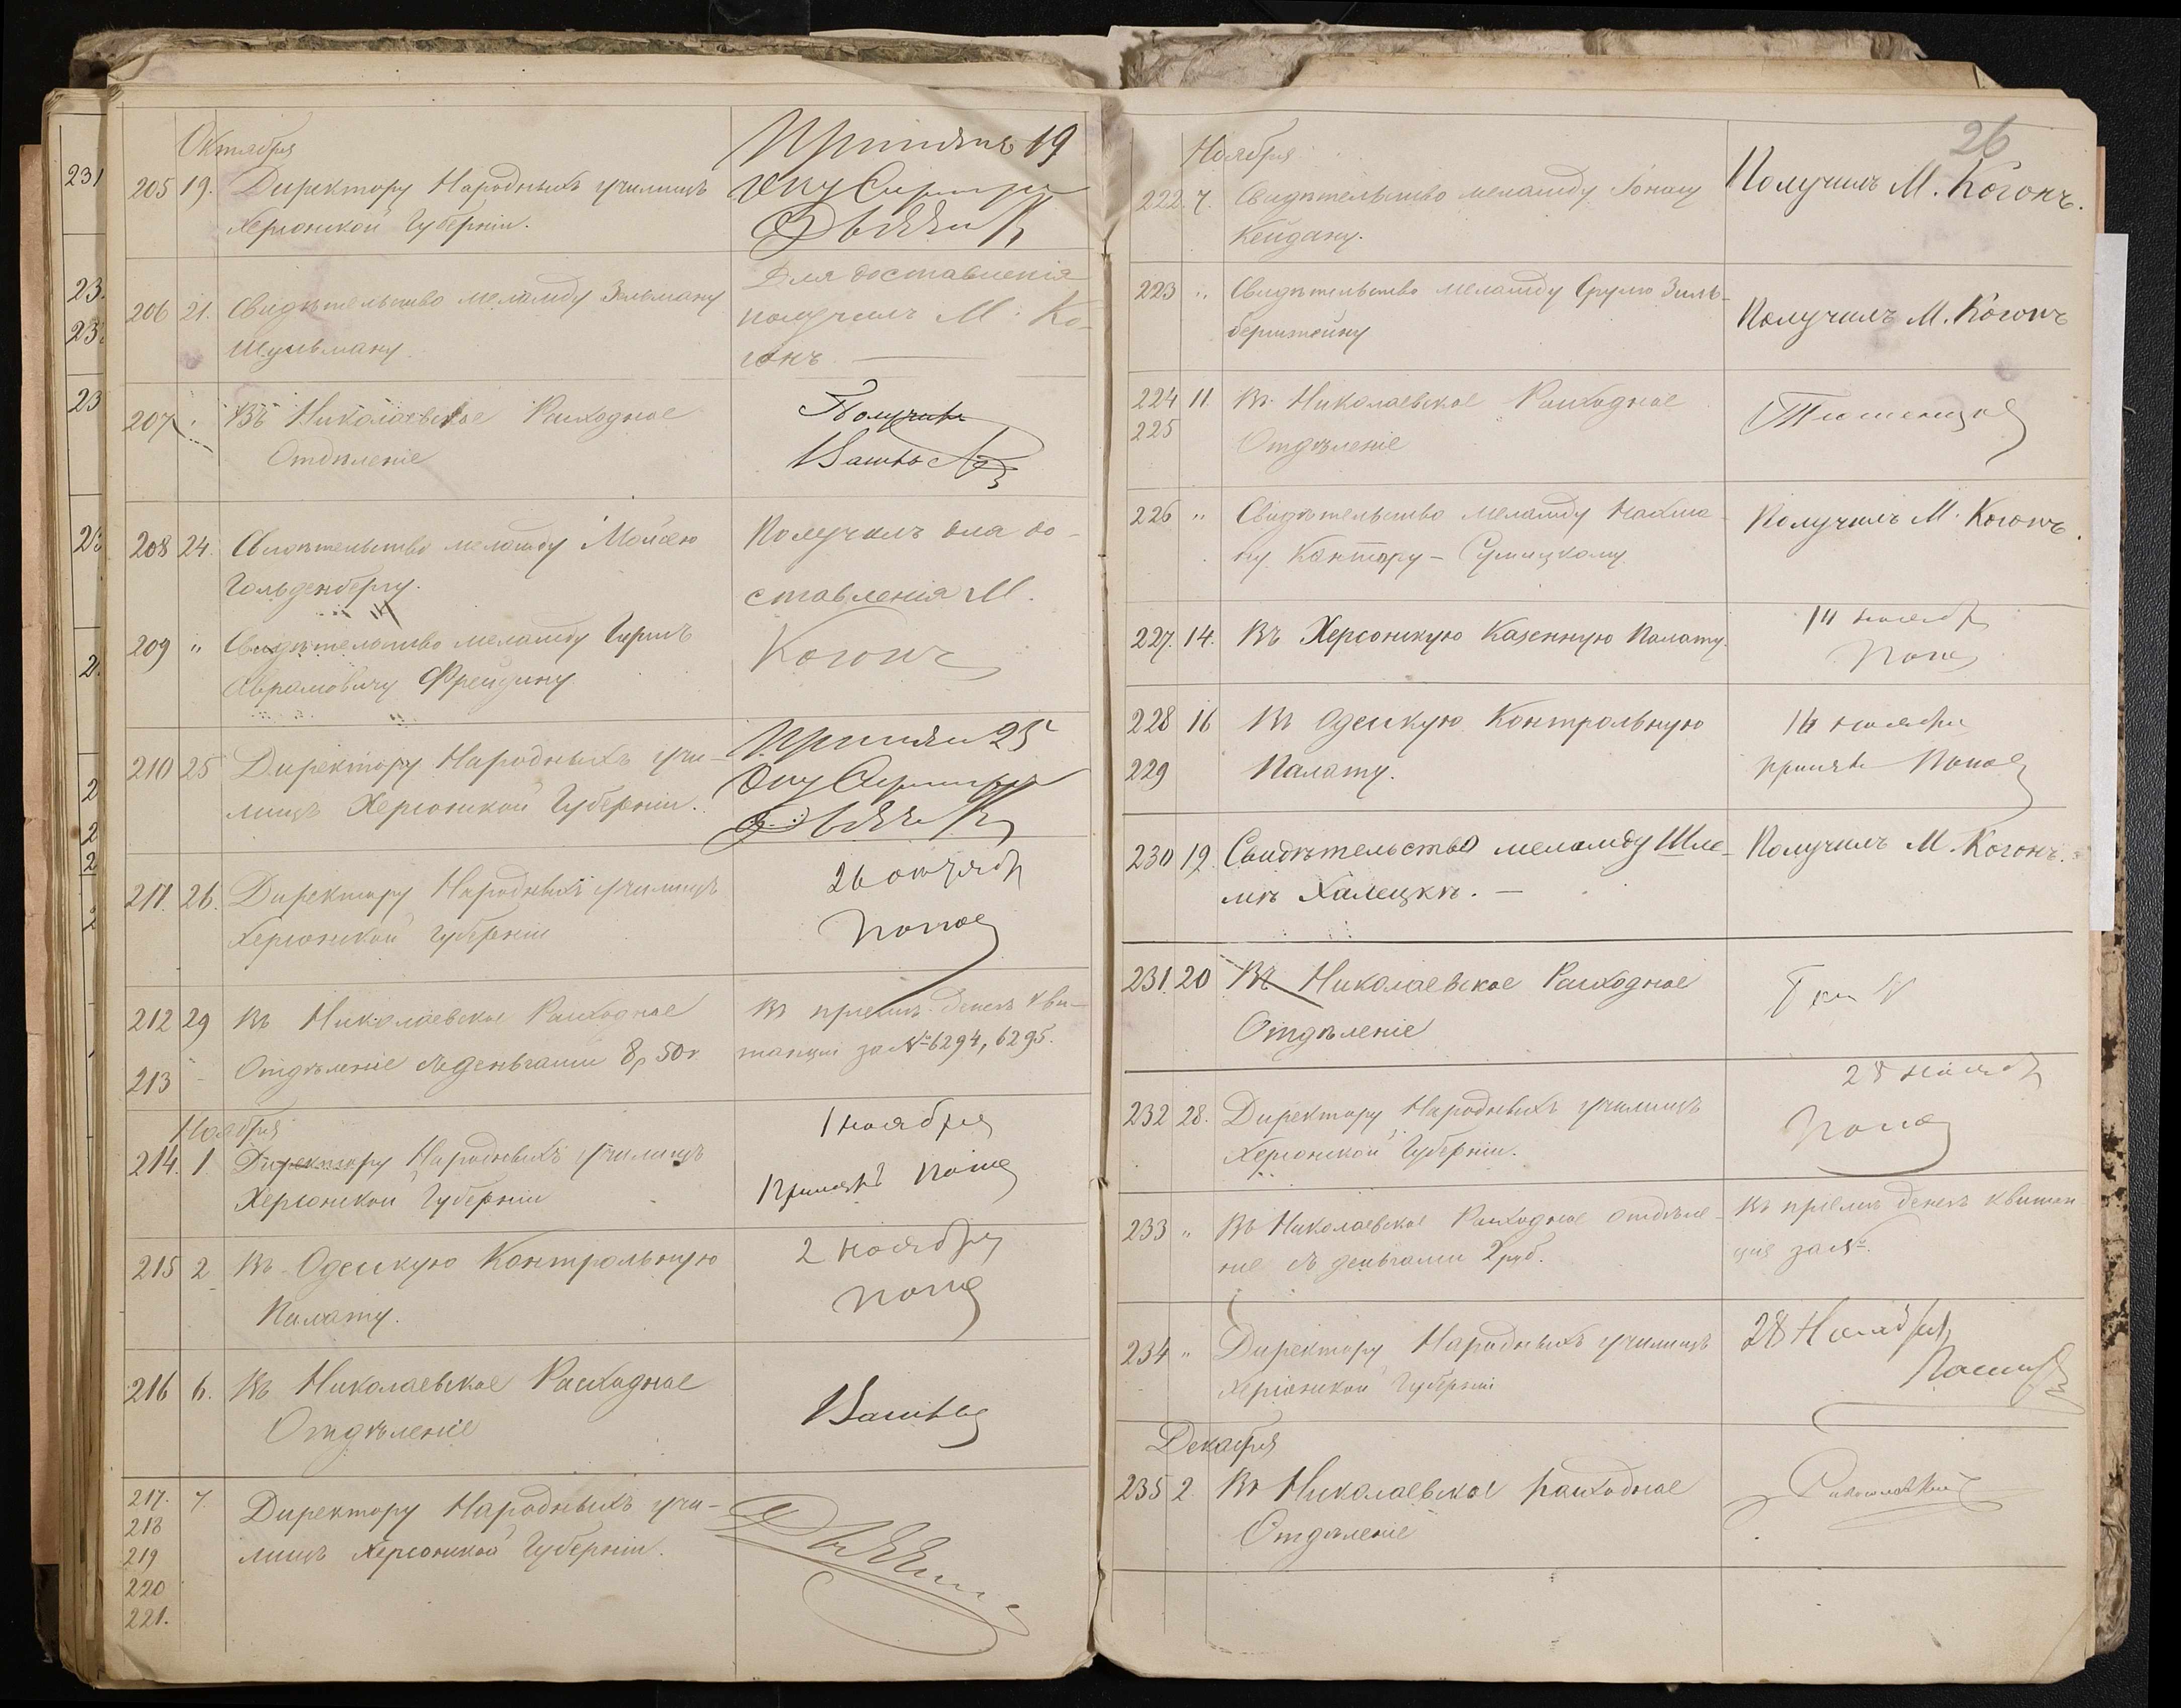 Октября
205 19. Директору Народныхъ училищъ
Херсонской Губерніи.
19
206 21. Свидѣтельство меламду Зельману
Шульману.
Для доставленія
получилъ М. Ко-
гонъ
207 " Въ Николаевское Расходное
Отдѣленіе
Получилъ
208 24. Свидѣтельство меламду Мойсею
Гольденбергу.
Получилъ для до-
ставленія М.
Когонъ
209 " Свидѣтельство меламду Гершъ
Абрамовичу Фрейдину
210 25 Директору Народныхъ учи-
лищъ Херсонской Губерніи.
25
211. 26. Директору Народныхъ училищъ
Херсонской Губерніи
26 октября
Попов
212 29 Въ Николаевское Расходное
213 Отдѣленіе съ деньгами 8 р 50 к
Въ пріемѣ денегъ кви-
танціи за № 6294, 6295.
Ноября
214. 1. Директору Народныхъ училищъ
Херсонской Губерніи
1 ноября
Принялъ Попов
215 2 Въ Одесскую Контрольную
Палату.
2 ноября
Попов
216 6. Въ Николаевское Расходное
Отдѣленіе
217. 7. Директору Народныхъ учи-
218
219 лищъ Херсонской Губерніи.
220
221.
26
Ноября
222. 7. Свидѣтельство меламду Іонасу
Кейдану.
Получилъ М. Когонъ.
223 " Свидѣтельство меламду Срулю Зиль-
берштейну
Получилъ М. Когонъ
224 11. Въ Николаевское Расходное
225 Отдѣленіе
226 " Свидѣтельство меламду Нахма-
ну Кантору-Сумицкому.
Получилъ М. Когонъ.
227. 14. Въ Херсонскую Казенную Палату.
14 ноября
Попов
228 16 Въ Одесскую Контрольную
229 Палату.
16 ноября
принялъ Попов
230 19. Свидѣтельство меламду Шле-
мѣ Халецкѣ. —
Получилъ М. Когонъ.
231. 20 Въ Николаевское Расходное
Отдѣленіе
232 28. Директору Народныхъ училищъ
Херсонской Губерніи.
28 ноября
Попов
233 " Въ Николаевское Расходное отдѣле-
ніе съ деньгами 2 руб.
Въ пріемѣ денегъ квитан
ція за №.
234 " Директору Народныхъ училищъ
Херсонской Губерніи
28 Ноября
Декабря
235 2. Въ Николаевское расходное
Отдѣленіе